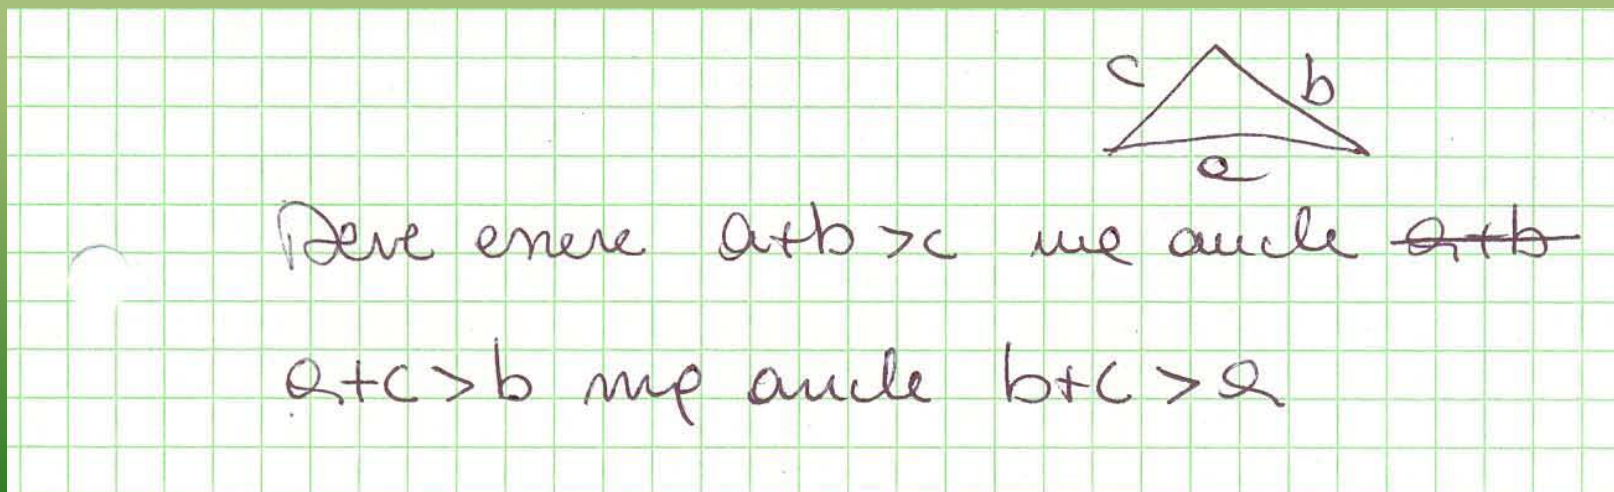 c
b
a
Deve essere a+b>c ma anche ~~a+b~~
a+c>b ma anche b+c>a